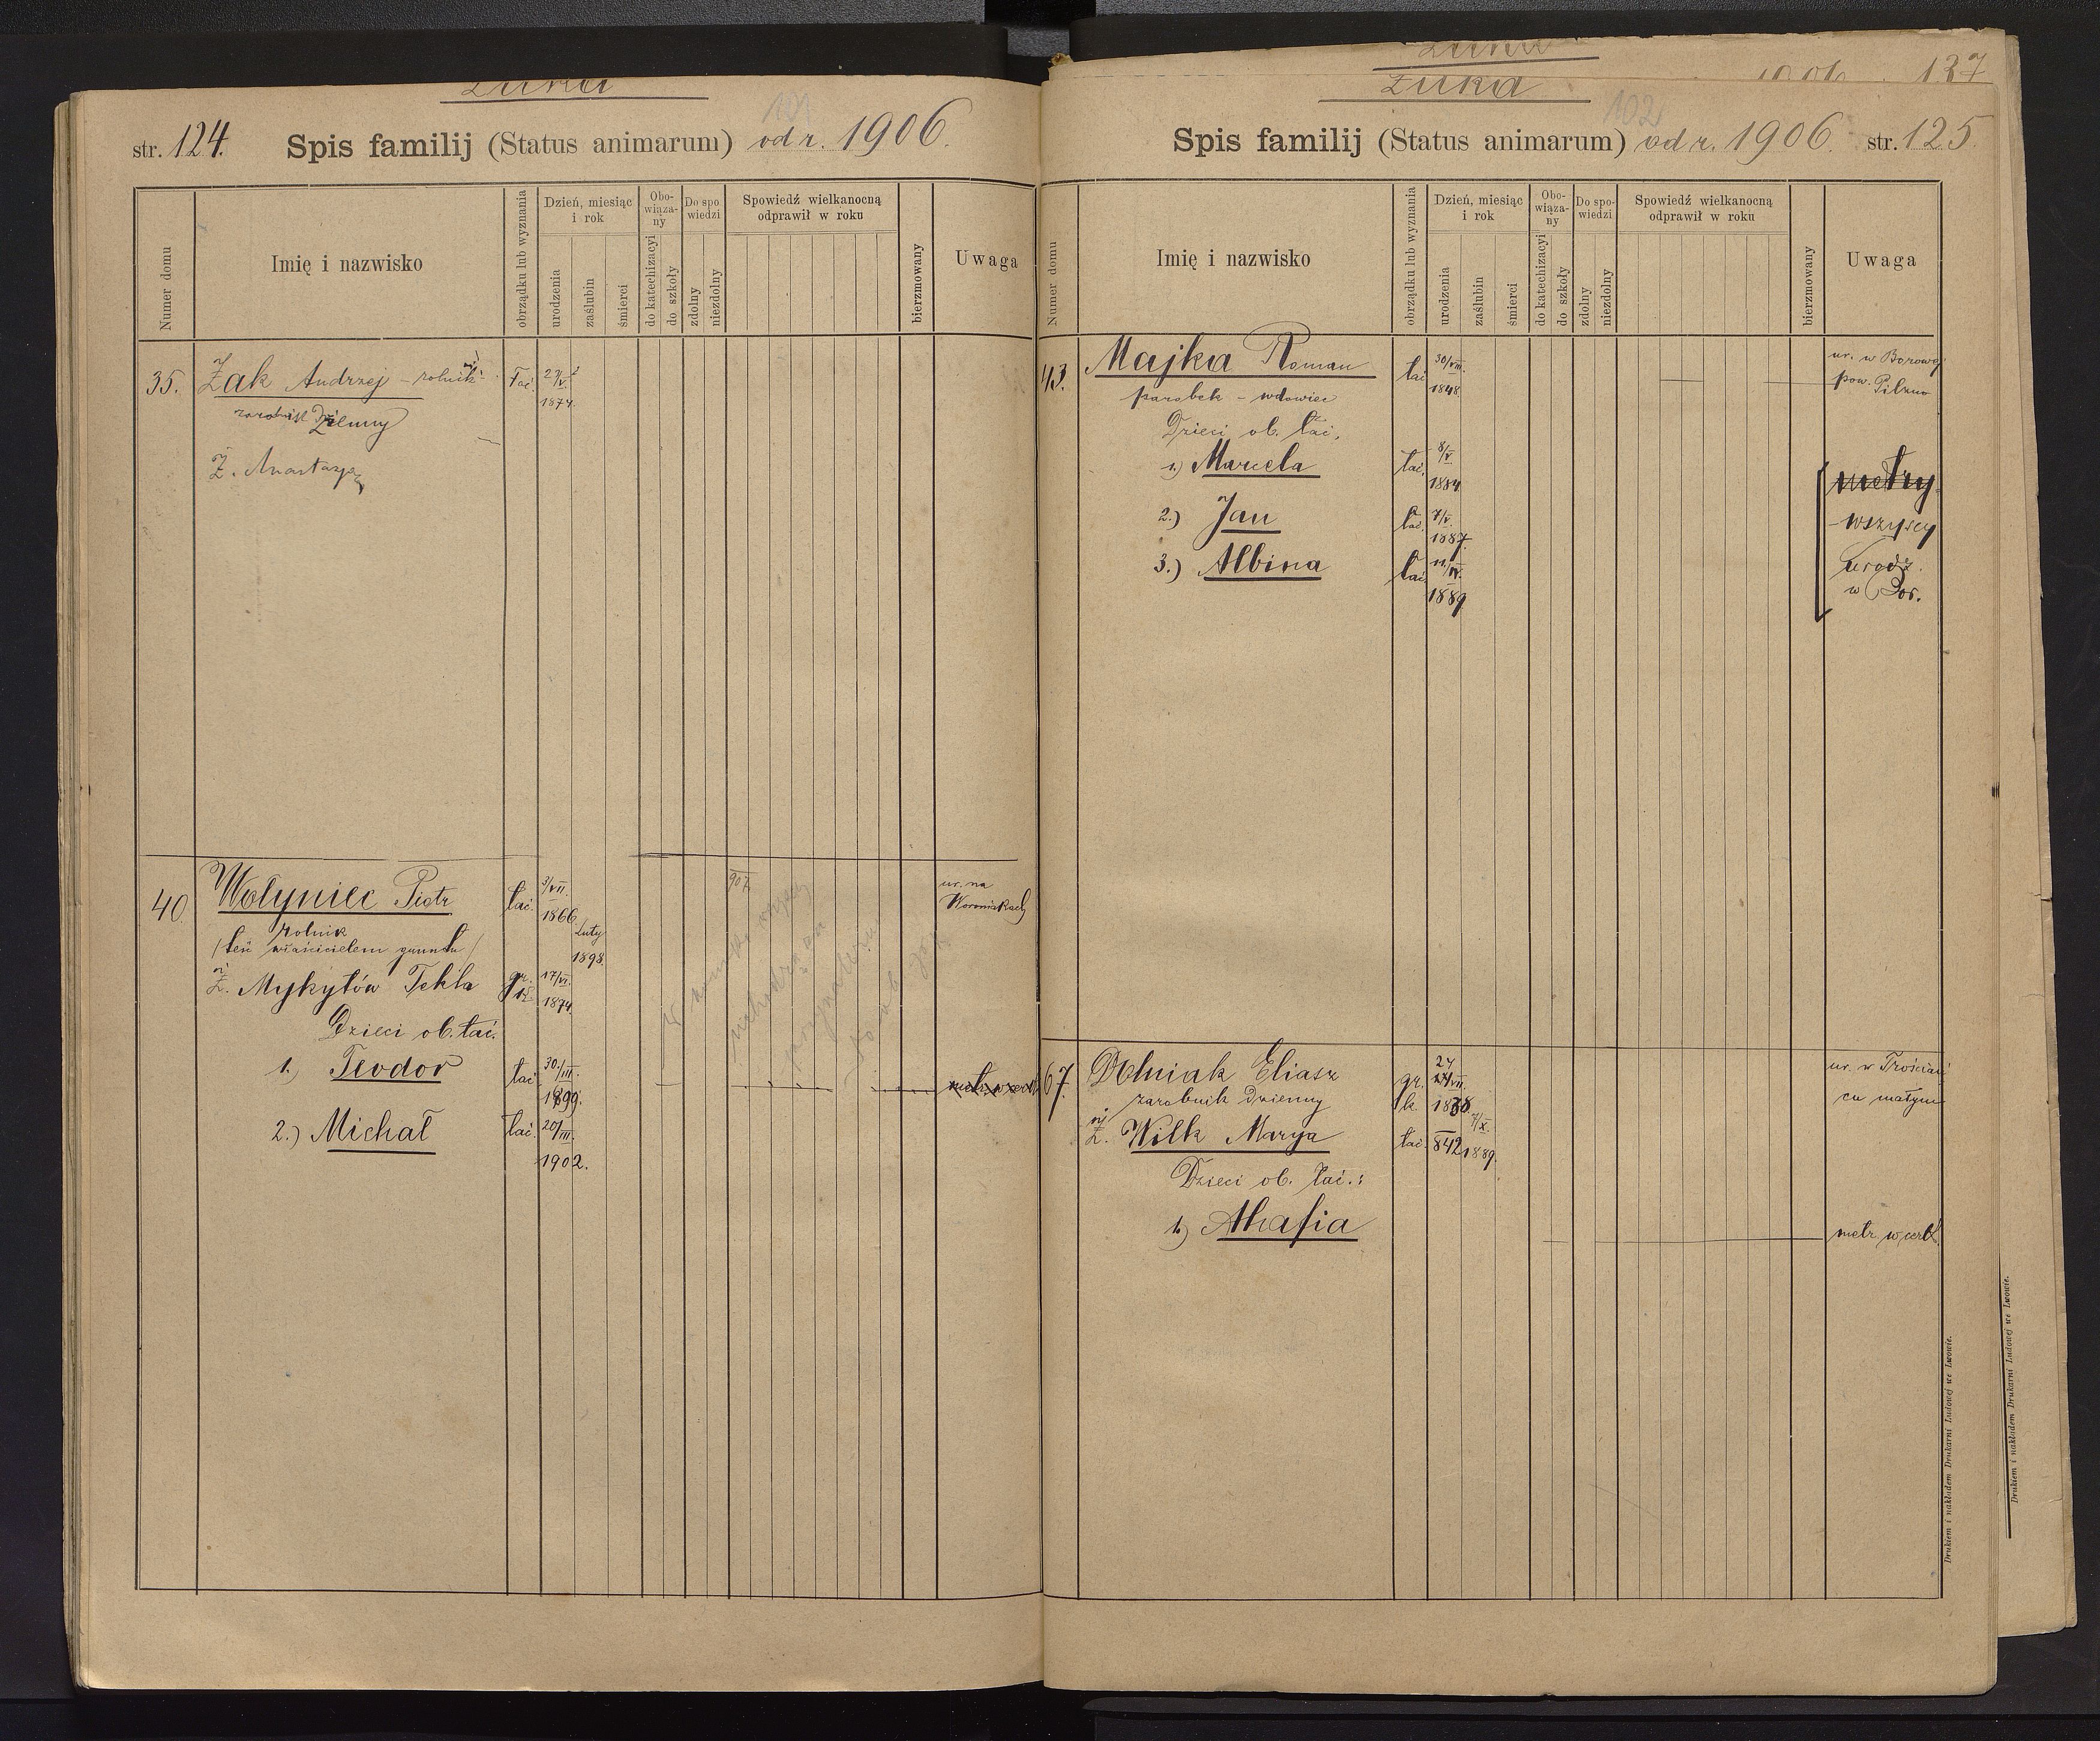 Żuka
101
str. 124. Spis familij (Status animarum) od r. 1906.
Numer domu
Imię i nazwisko
obrządku lub wyznania
Dzień, miesiąc i rok
urodzenia
zaślubin
śmierci
Obowiąza-ny
do katechizacyi
do szkoły
Do spo wiedzi
zdolny
niezdolny
Spowiedź wielkanocną
odprawił w roku
bierzmowany
Uwaga
35. Żak Andrzej - rolnik łać.
1874.
zarobnik dzienny
Ż. Anastazya
40 Wołyniec Piotr łać. 3/VII. 1866. 907. ur. na
Woroniakach
rolnik
(teść właścicielem gruntu) Luty 1898.
Ż. Mykytów Tekla gr. k. 17/VI. 1874.
Dzieci ob. łać.
1.) Teodor łać. 30/III. 1899.
2.) Michał łać. 20/III. 1902.
Żuka
Żuka
1906. 137
102
Spis familij (Status animarum) od r. 1906. str. 125.
Numer domu
Imię i nazwisko
obrządku lub wyznania
Dzień, miesiąc i rok
urodzenia
zaślubin
śmierci
Obo-wiąza-ny
do katechizacyi
do szkoły
Do spo-wiedzi
zdolny
niezdolny
Spowiedź wielkanocną
odprawił w roku
bierzmowany
Uwaga
43. Majka Roman łać 30/VIII. 1848. ur. w Borowej
pow. Pilzno
parobek - wdowiec
Dzieci ob. łać.
1.) Marcela łać. 8/V 1884 metry
2.) Jan łać. 7/V. 1887. - wszyscy
3.) Albina łać. 11/IV. 1889 urodz.
w Bor.
67. Olniak Eliasz gr. k. 24 VII. 1838 ur. w Trościań
cu małym
zarobnik dzienny
Ż. Wilk Marya łać. 842 7/X. 1889.
Dzieci ob. łać.:
1.) Ahafia metr. w cerk.
Drukiem i nakładem Drukarni Ludowej we Lwowie.
Drukiem i nakładem Drukarni Ludowej we Lwowie.